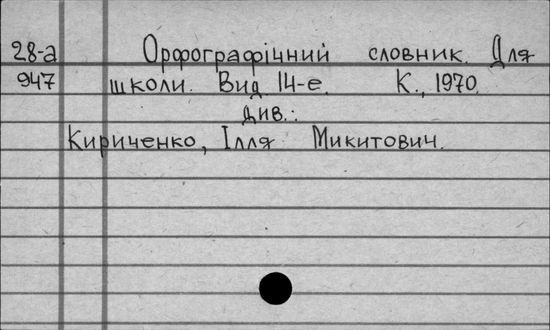 28-а Орфографічний словник. Для
947 школи. Вид 14-е. К., 1970.
див.:
Кириченко, Ілля Микитович.